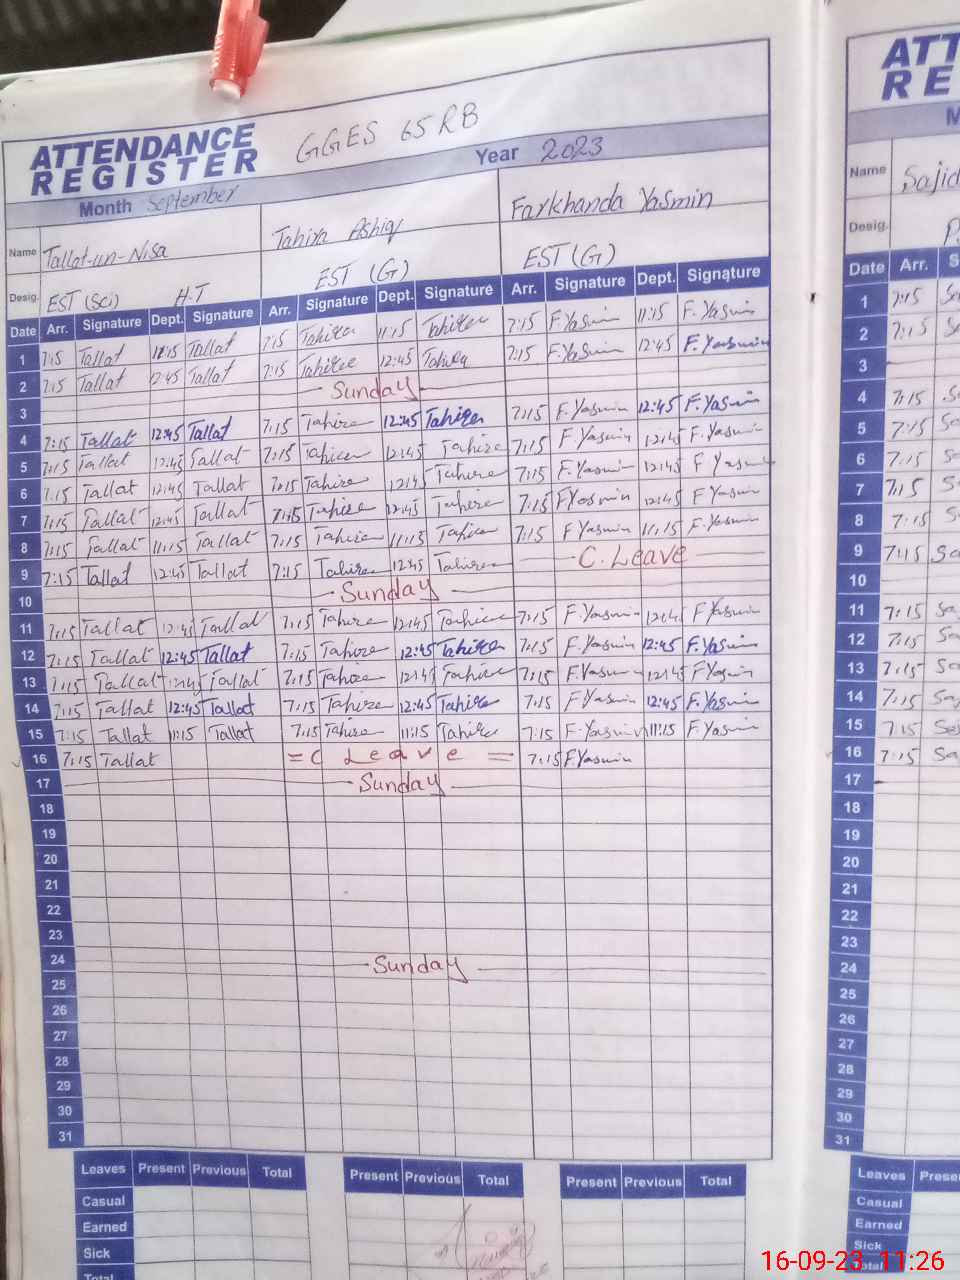 ATTENDANCE REGISTER GGES 65 RB
Month September Year 2023
Name Tallat-un-Nisa Tahira Ashiq Farkhanda Yasmin
Desig. EST (Sci) H.T EST (G) EST (G)
Date Arr. Signature Dept. Signature Arr. Signature Dept. Signature Arr. Signature Dept. Signature
1 7:15 Tallat 11:15 Tallat 7:15 Tahira 11:15 Tahira 7:15 F.Yasmin 11:15 F.Yasmin
2 7:15 Tallat 12:45 Tallat 7:15 Tahira 12:45 Tahira 7:15 F.Yasmin 12:45 F.Yasmin
3 Sunday
4 7:15 Tallat 12:45 Tallat 7:15 Tahira 12:45 Tahira 7:15 F.Yasmin 12:45 F.Yasmin
5 7:15 Tallat 12:45 Tallat 7:15 Tahira 12:45 Tahira 7:15 F.Yasmin 12:45 F.Yasmin
6 7:15 Tallat 12:45 Tallat 7:15 Tahira 12:45 Tahira 7:15 F.Yasmin 12:45 F Yasmin
7 7:15 Tallat 12:45 Tallat 7:15 Tahira 12:45 Tahira 7:15 F Yasmin 12:45 F Yasmin
8 7:15 Tallat 11:15 Tallat 7:15 Tahira 11:15 Tahira 7:15 F Yasmin 11:15 F.Yasmin
9 7:15 Tallat 12:45 Tallat 7:15 Tahira 12:45 Tahira C.Leave
10 Sunday
11 7:15 Tallat 12:45 Tallat 7:15 Tahira 12:45 Tahira 7:15 F.Yasmin 12:45 F Yasmin
12 7:15 Tallat 12:45 Tallat 7:15 Tahira 12:45 Tahira 7:15 F.Yasmin 12:45 F.Yasmin
13 7:15 Tallat 12:45 Tallat 7:15 Tahira 12:45 Tahira 7:15 F.Yasmin 12:45 F Yasmin
14 7:15 Tallat 12:45 Tallat 7:15 Tahira 12:45 Tahira 7:15 F Yasmin 12:45 F.Yasmin
15 7:15 Tallat 11:15 Tallat 7:15 Tahira 11:15 Tahira 7:15 F.Yasmin 11:15 F.Yasmin
16 7:15 Tallat C Leave 7:15 F.Yasmin
17 Sunday
18
19
20
21
22
23
24 Sunday
25
26
27
28
29
30
31
Leaves Present Previous Total Present Previous Total Present Previous Total
Casual
Earned
Sick
Total
Name Sajid
Desig.
Date Arr.
1 7:15
2 7:15
3
4 7:15
5 7:15
6 7:15
7 7:15
8 7:15
9 7:15
10
11 7:15
12 7:15
13 7:15
14 7:15
15 7:15
16 7:15
17
18
19
20
21
22
23
24
25
26
27
28
29
30
31
Leaves
Casual
Earned
Sick
Total
16-09-23 11:26